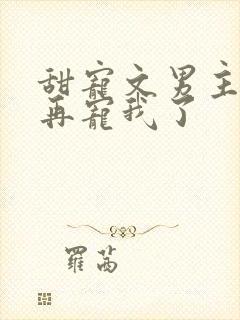 甜寵文男主
再寵我了
羅茜